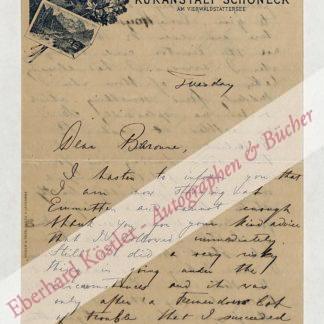 KURANSTALT SCHÖNECK
AM VIERWALDSTÄTTERSEE
Tuesday
Dear Baronne,
I hasten to inform you that
I am now staying at
Emmetten and cannot enough
thank you for your kind advice
that I followed immediately.
I did a very risky
thing in going under the
circumstances and it was
only after a tremendous lot
of trouble that I succeeded
Eberhard Köstler - Autographen & Bücher